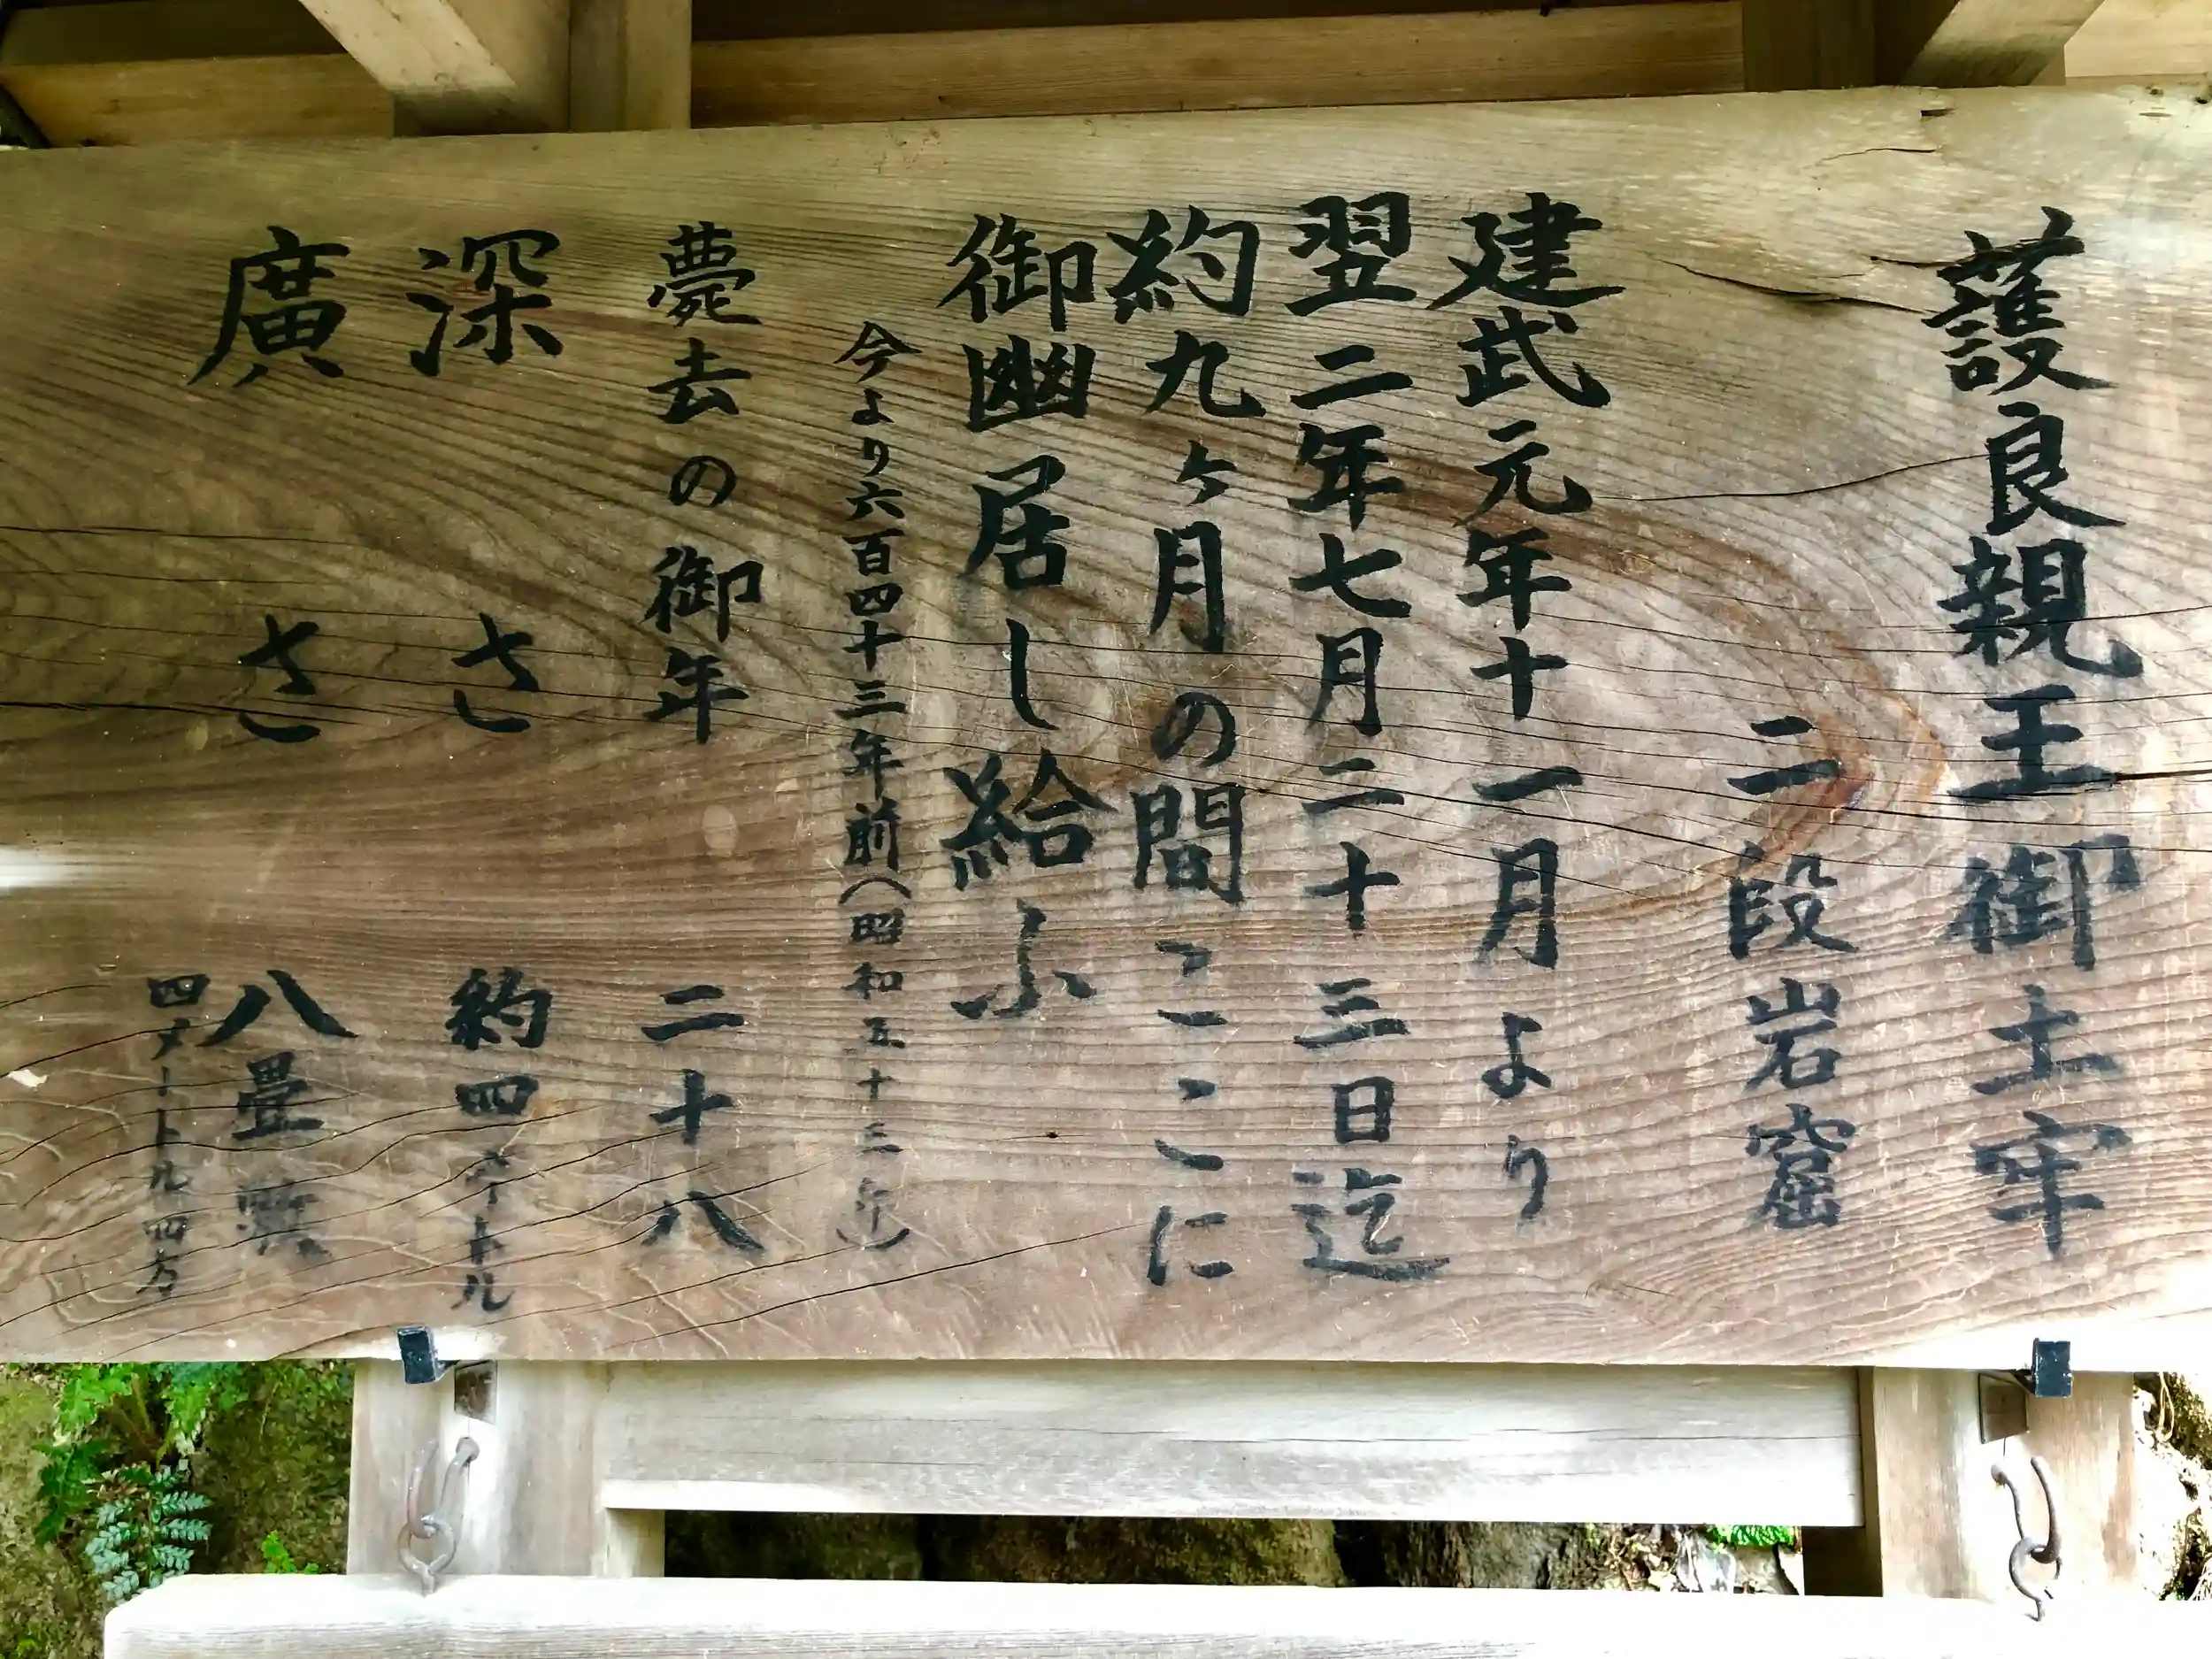 護良親王御土牢
二段岩窟
建武元年十一月より
翌二年七月二十三日迄
約九ヶ月の間ここに
御幽居し給ふ
今より六百四十三年前（昭和五十三年）
薨去の御年 二十八
深さ 約四メートル
廣さ 八畳
四メートル四方